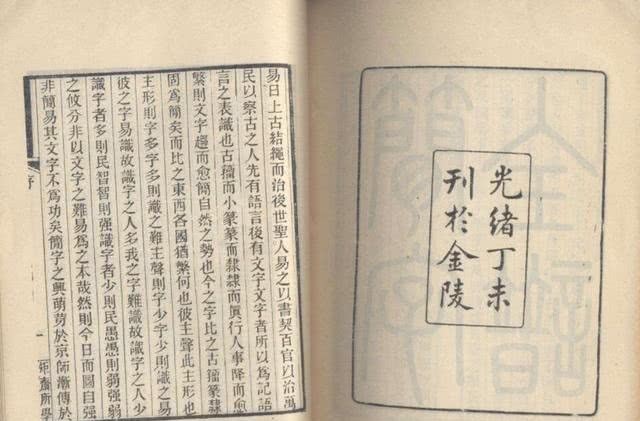 光緒丁未
刊於金陵
易曰上古結繩而治後世聖人易之以書契百官以治萬
民以察古之人先有語言後有文字文字者所以爲記語
言之表識也古籀而小篆篆而隸隸而眞行人事降而
繁則文字趨而愈簡自然之勢也今之字比之古籀篆隸
固爲簡矣而比之東西各國猶繁何也彼主聲此主形也
主形則字多字多則識之難主聲則字少字少則識之易
彼之字易識故識字之人多我之字難識故識字之人少
識字者多則民智智則强識字者少則民愚愚則弱强弱
之攸分非以文字之難易爲之本哉然則今日而圖自强
非簡易其文字不爲功矣簡字之興萌芽於京師漸傳於
序
一
矩齋所學